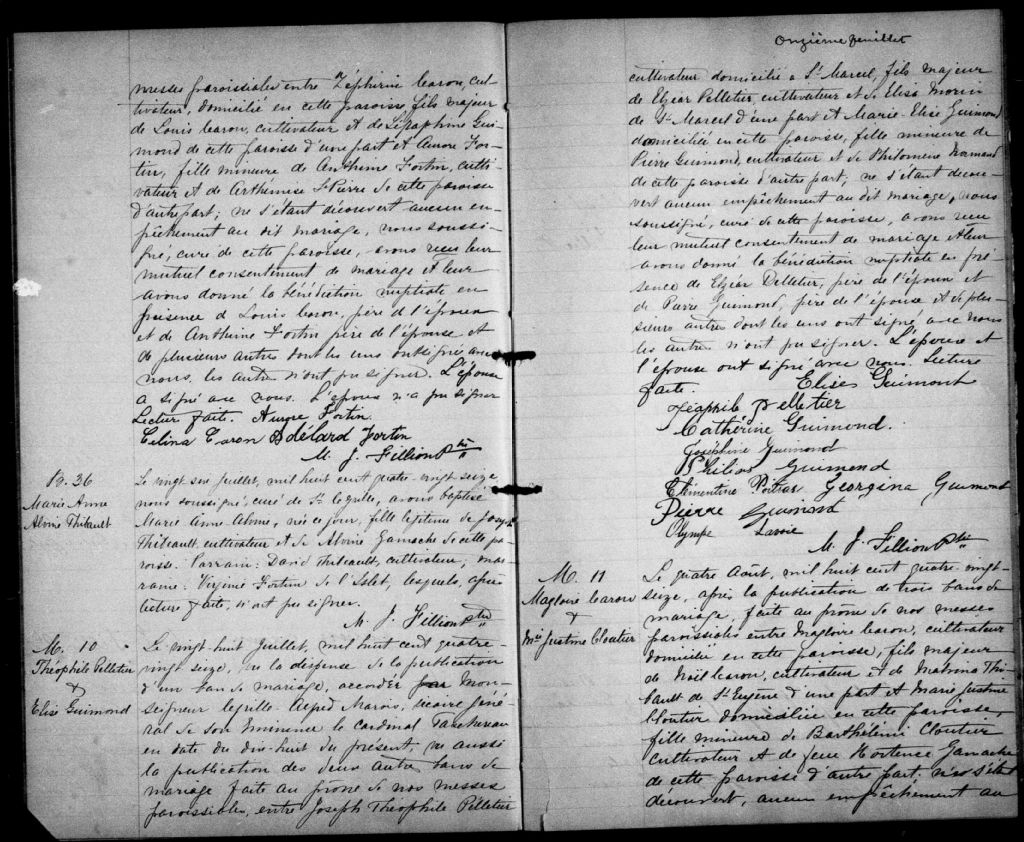 messes paroissiales entre Zéphirin Caron, cul-
tivateur, domicilié en cette paroisse, fils majeur
de Louis Caron, cultivateur et de Séraphine Gui-
mond de cette paroisse d'une part et Aurore For-
tin, fille mineure de Anthime Fortin, culti-
vateur et de Arthémise St Pierre de cette paroisse
d'autre part; ne s'étant découvert aucun em-
pêchement au dit mariage, nous soussi-
gné, curé de cette paroisse, avons reçu leur
mutuel consentement de mariage et leur
avons donné la bénédiction nuptiale en
présence de Louis Caron, père de l'époux
et de Anthime Fortin père de l'épouse et
de plusieurs autres dont les uns ont signé avec
nous, les autres n'ont pu signer. L'épouse
a signé avec nous. L'époux n'a pu signer
Lecture faite. Aurore Fortin.
Celina Caron Adélard Fortin
M. J. Fillion Ptre
B. 36
Marie Anne
Alvine Thibault
Le vingt six juillet, mil huit cent quatre-vingt seize
nous soussigné, curé de St Cyrille, avons baptisé
Marie Anne Alvine, née ce jour, fille légitime de Joseph
Thibeault, cultivateur et de Alvine Gamache de cette pa-
roisse. Parrain: David Thibeault, cultivateur, mar-
raine: Virginie Fortin de l'Islet, lesquels, après
lecture faite, n'ont pu signer.
M. J. Fillion Ptre
M. 10
Théophile Pelletier
&
Elise Guimond
Le vingt-huit Juillet, mil huit cent quatre-
vingt seize, vu la dispense de la publication
d'un ban de mariage, accordée par Mon-
seigneur Cyrille Alfred Marois, vicaire géné-
ral de Son Eminence le Cardinal Taschereau
en date du dix-huit du présent, vu aussi
la publication des deux autres bans de
mariage faite au prône de nos messes
paroissiales, entre Joseph Théophile Pelletier
Onzième feuillet
cultivateur domicilié à St Marcel, fils majeur
de Elzéar Pelletier, cultivateur et de Elisa Morin
de St Marcel d'une part et Marie-Elise Guimond
domiciliée en cette paroisse, fille mineure de
Pierre Guimond, cultivateur et de Philomène Normand
de cette paroisse d'autre part; ne s'étant décou-
vert aucun empêchement au dit mariage, nous
soussigné, curé de cette paroisse, avons reçu
leur mutuel consentement de mariage et leur
avons donné la bénédiction nuptiale en pré-
sence de Elzéar Pelletier, père de l'époux et
de Pierre Guimont, père de l'épouse et de plu-
sieurs autres dont les uns ont signé avec nous
les autres n'ont pu signer. L'époux et
l'épouse ont signé avec nous. Lecture
faite. Elise Guimont
Théophile Pelletier
Cathérine Guimond.
Joséphine Guimond
Philias Guimond
Clémentine Poitras Georgina Guimont
Pierre Guimont
Olympe Lavoie
M. J. Fillion Ptre
M. 11
Magloire Caron
&
Mie Justine Cloutier
Le quatre Août, mil huit cent quatre vingt-
seize, après la publication de trois bans de
mariage, faite au prône de nos messes
paroissiales entre Magloire Caron, cultivateur
domicilié en cette paroisse, fils majeur
de Noël Caron, cultivateur et de Malvina Thi-
bault de St Eugène d'une part et Marie Justine
Cloutier domiciliée en cette paroisse,
fille mineure de Barthélemi Cloutier
cultivateur et de feue Hortence Gamache
de cette paroisse d'autre part. ne s'étant
découvert, aucun empêchement au